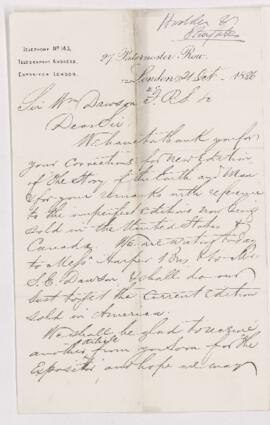 Hodder &
Stoughton
TELEPHONE No 163,
TELEGRAPHIC ADDRESS,
EXPOSITOR LONDON.
27 Paternoster Row.
London 21 Oct 1886
Sir Wm Dawson F.R.S &c
Dear Sir,
We have to thank you for
your corrections for New Edition
of the Story of the Earth and Man
& for your remarks with reference
to the imperfect editions now being
sold in the United States &
Canada. We are writing today
to Messrs Harper Bros & to Mr
S. E. Dawson & shall do our
best to get the current edition
sold in America.
We shall be glad to receive
another article from you soon for the
Expositor and hope we may